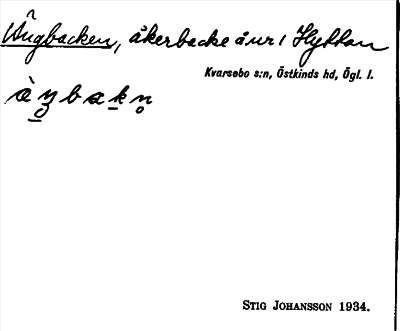 Ûngbacken, åkerbacke å nr 1 Hyttan
Kvarsebo s:n, Östkinds hd, Ögl. l.
STIG JOHANSSON 1934.